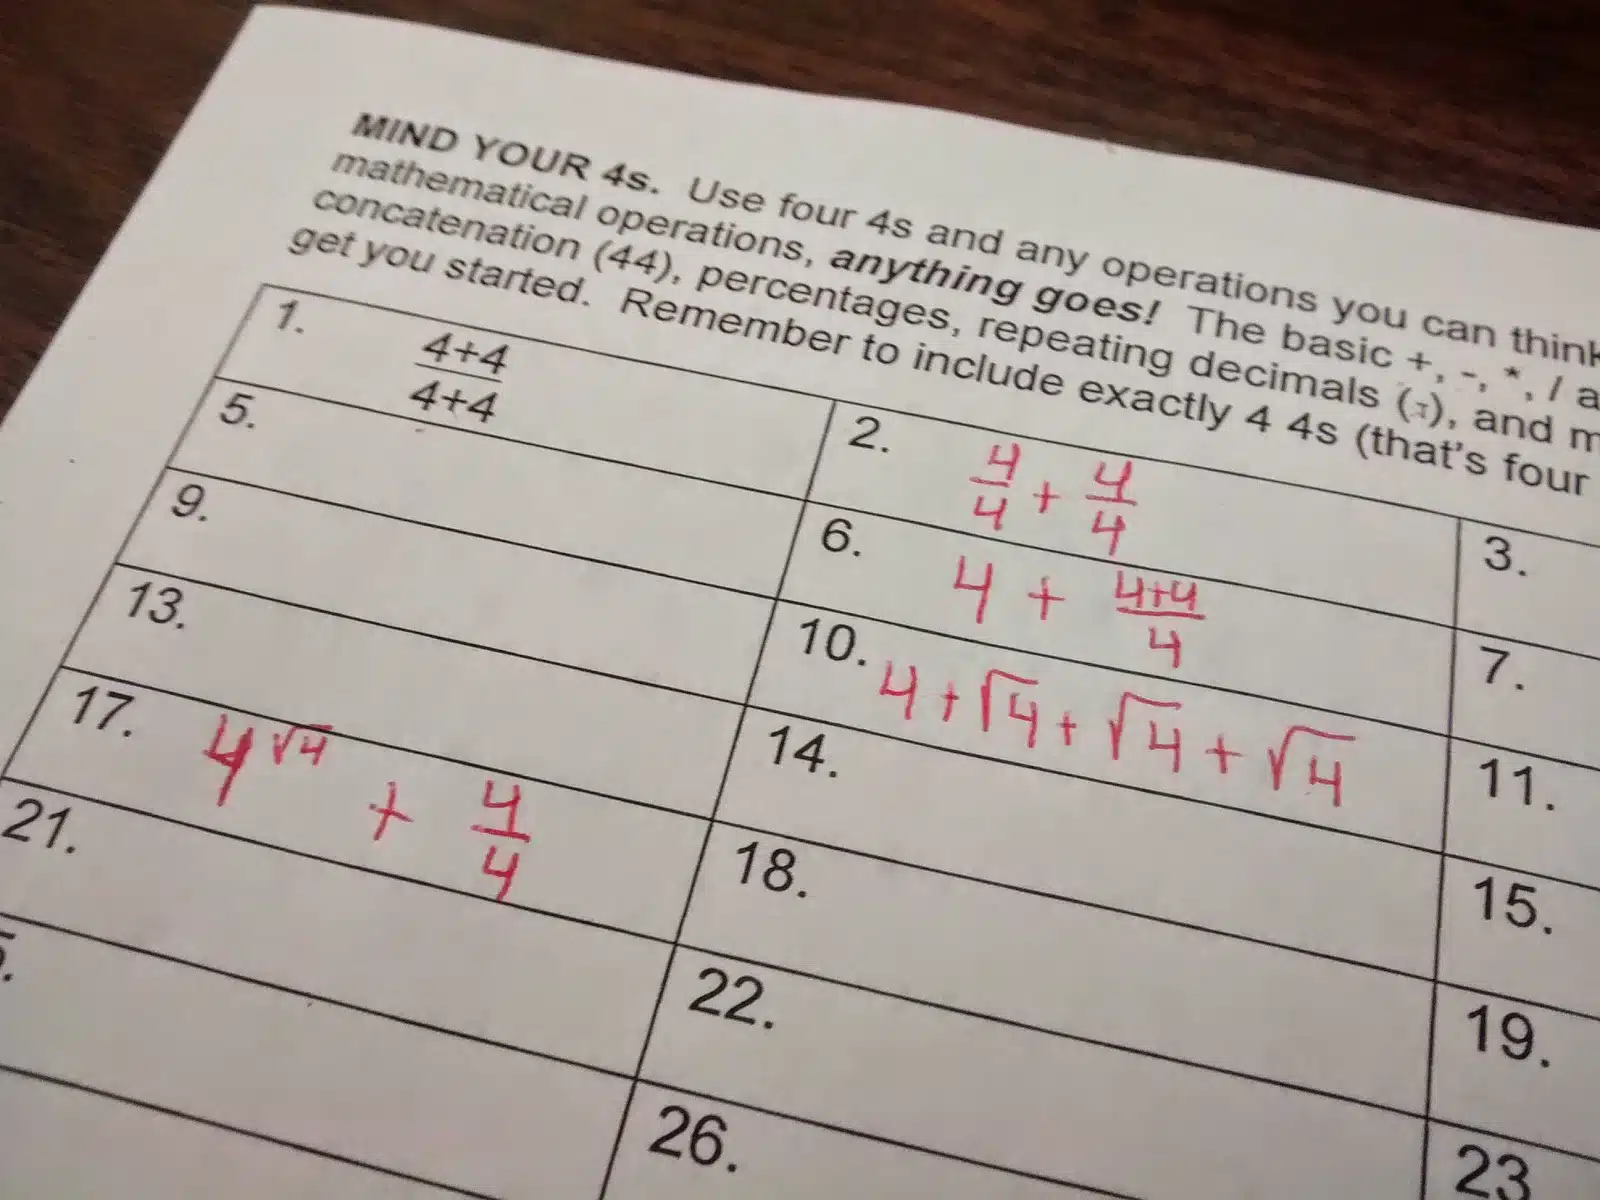 MIND YOUR 4s. Use four 4s and any operations you can think
mathematical operations, anything goes! The basic +, -, *, / a
concatenation (44), percentages, repeating decimals (), and m
get you started. Remember to include exactly 4 4s (that's four
1.
4+4
4+4
2.
4 + 4
4 4
3.
5.
6.
4 + 4+4
4
7.
9.
10. 4 + √4 + √4 + √4
11.
13.
14.
15.
17. 4^√4 + 4
4
18.
19.
21.
22.
23
26.